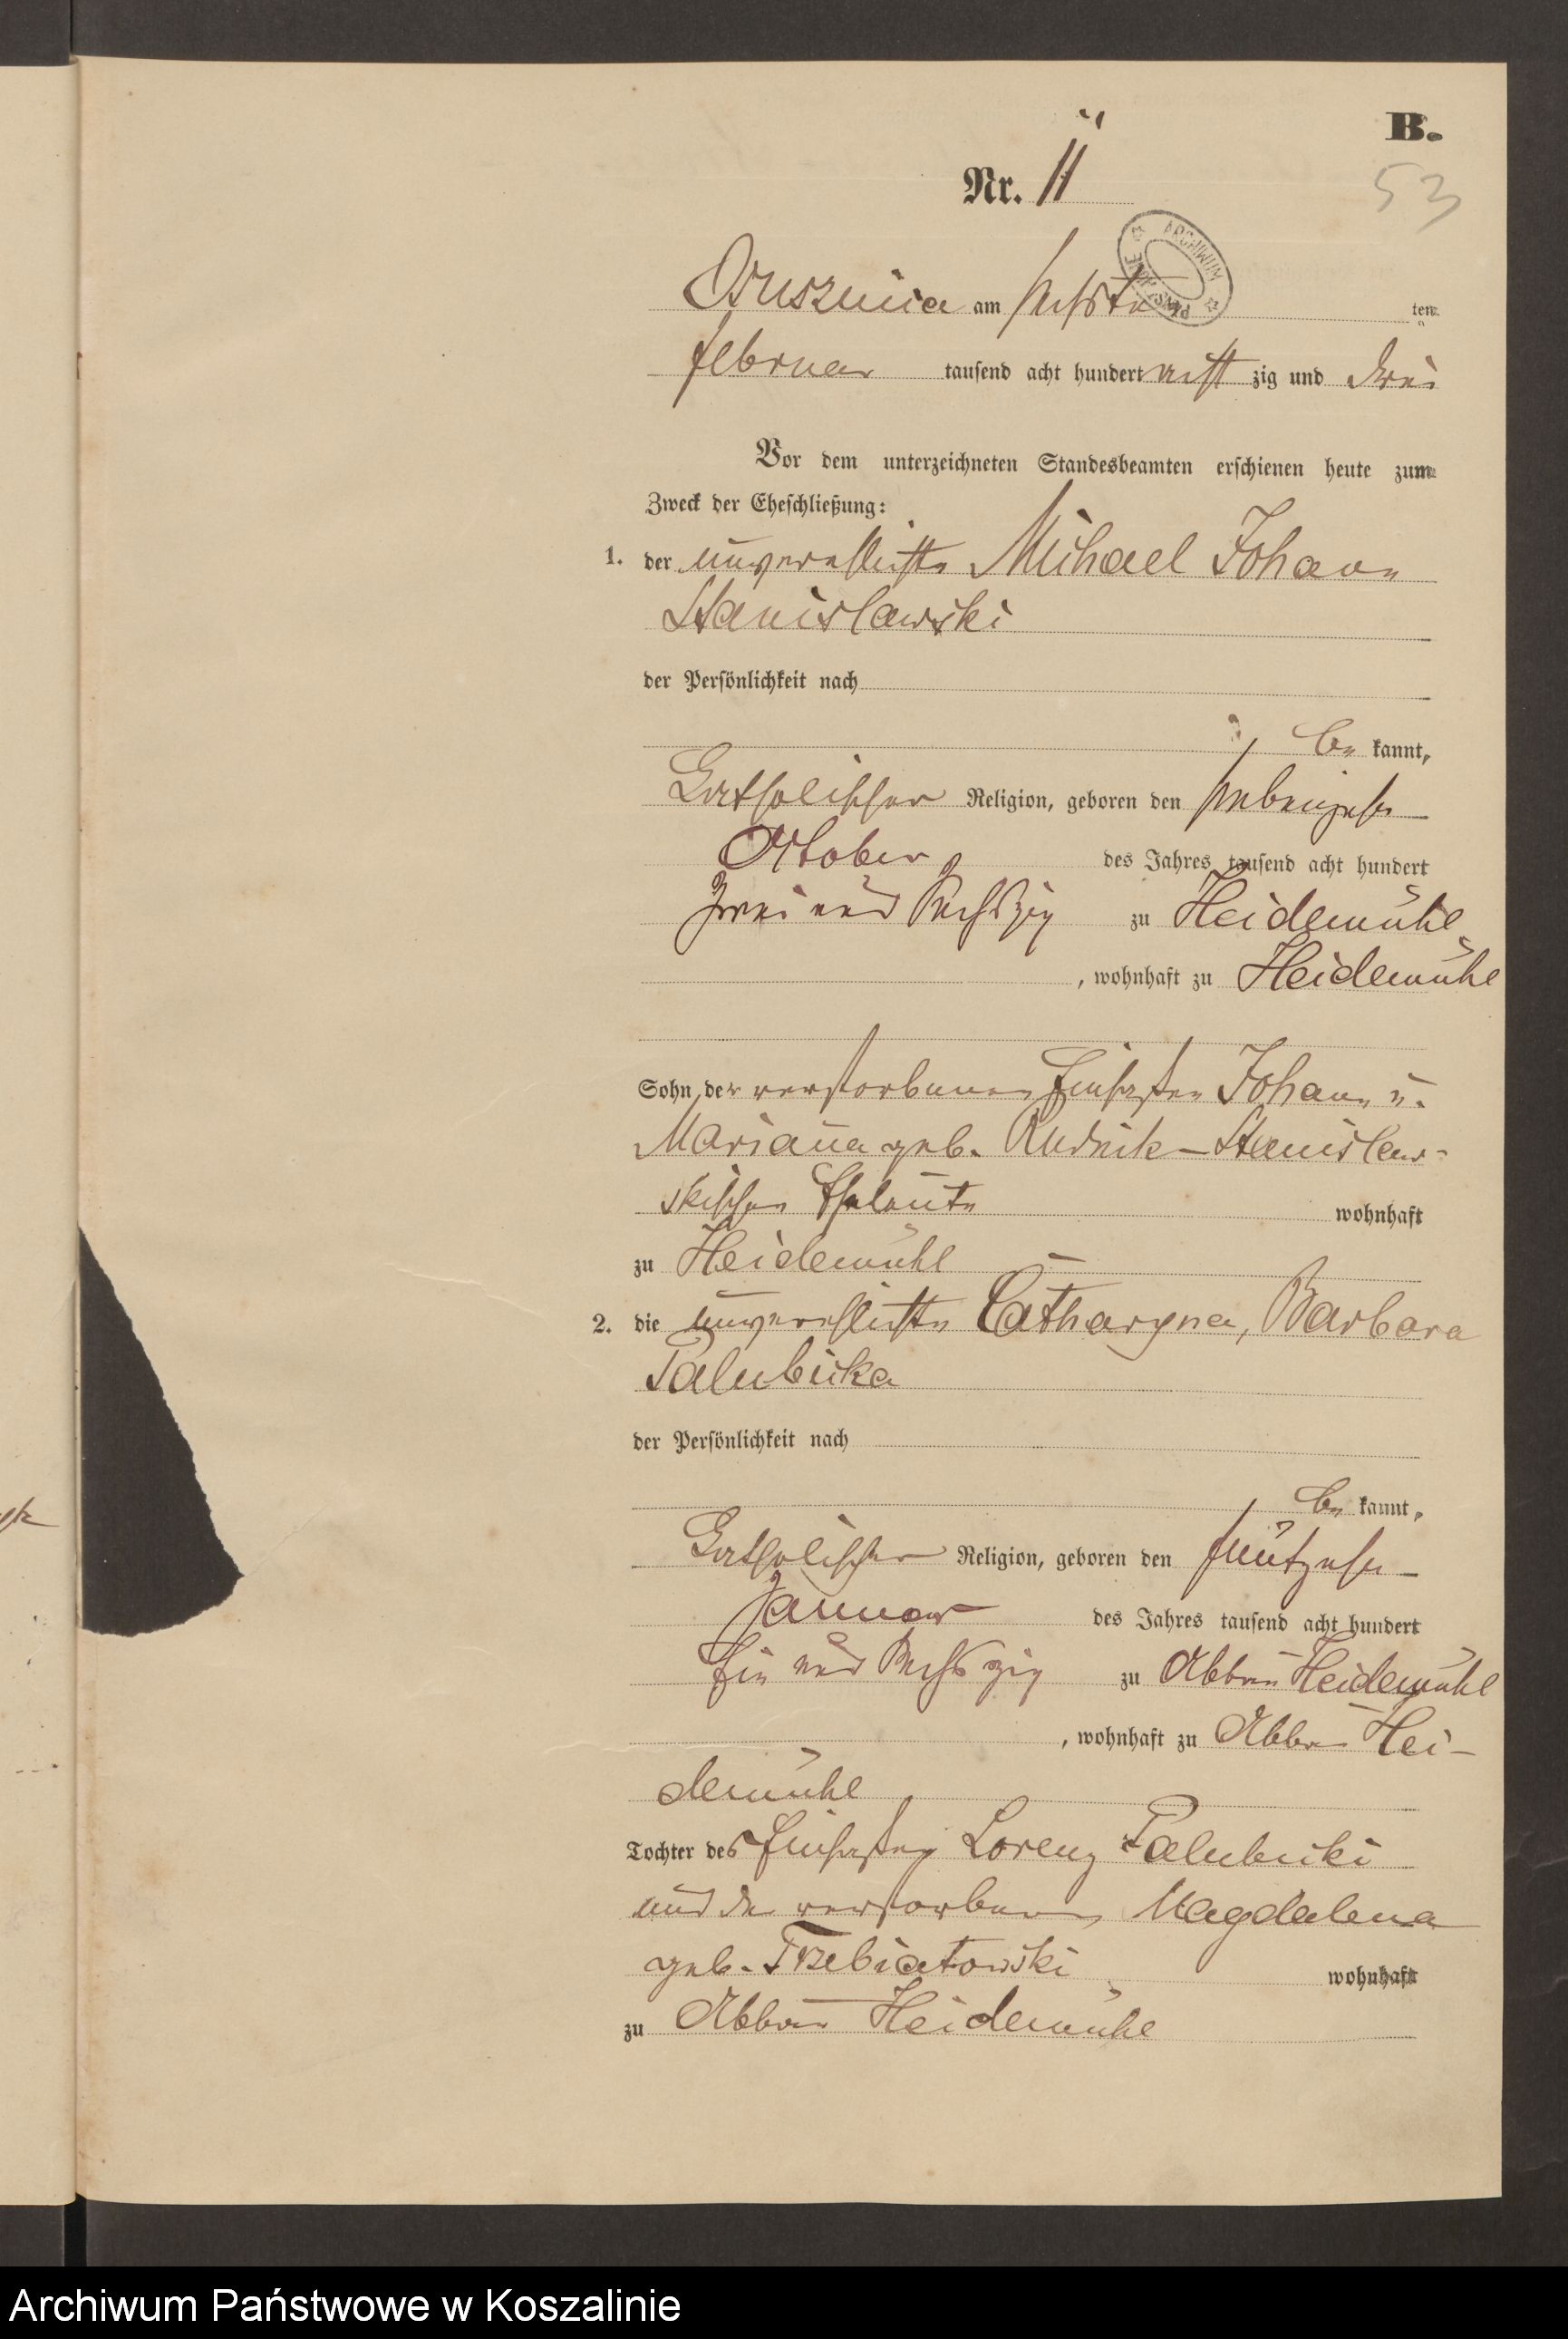 B.
Nr. 11
53
ARCHIWUM PAŃSTWOWE
Orusznica am sechsten ten
Februar tausend acht hundert acht zig und drei
Vor dem unterzeichneten Standesbeamten erschienen heute zum
Zweck der Eheschließung:
1. der unverehlichte Michael Johann
Stanislawski
der Persönlichkeit nach
be kannt,
Catholischer Religion, geboren den siebenzehn
October des Jahres tausend acht hundert
zwei und sechszig zu Heidemühl
, wohnhaft zu Heidemühl
Sohn der verstorbenen Einsaßen Johann u.
Marianna geb. Rudnik-Stanislaw-
skischen Eheleute wohnhaft
zu Heidemühl
2. die unverehlichte Catharyna, Barbara
Palubicka
der Persönlichkeit nach
be kannt,
Catholischer Religion, geboren den fünfzehn
Januar des Jahres tausend acht hundert
Ein und sechszig zu Abbau Heidemühl
, wohnhaft zu Abbau Hei-
demühl
Tochter des Einsaßen Lorenz Palubicki
und der verstorbenen Magdalena
geb. Trzebiatowski wohnhaft
zu Abbau Heidemühl
Archiwum Państwowe w Koszalinie